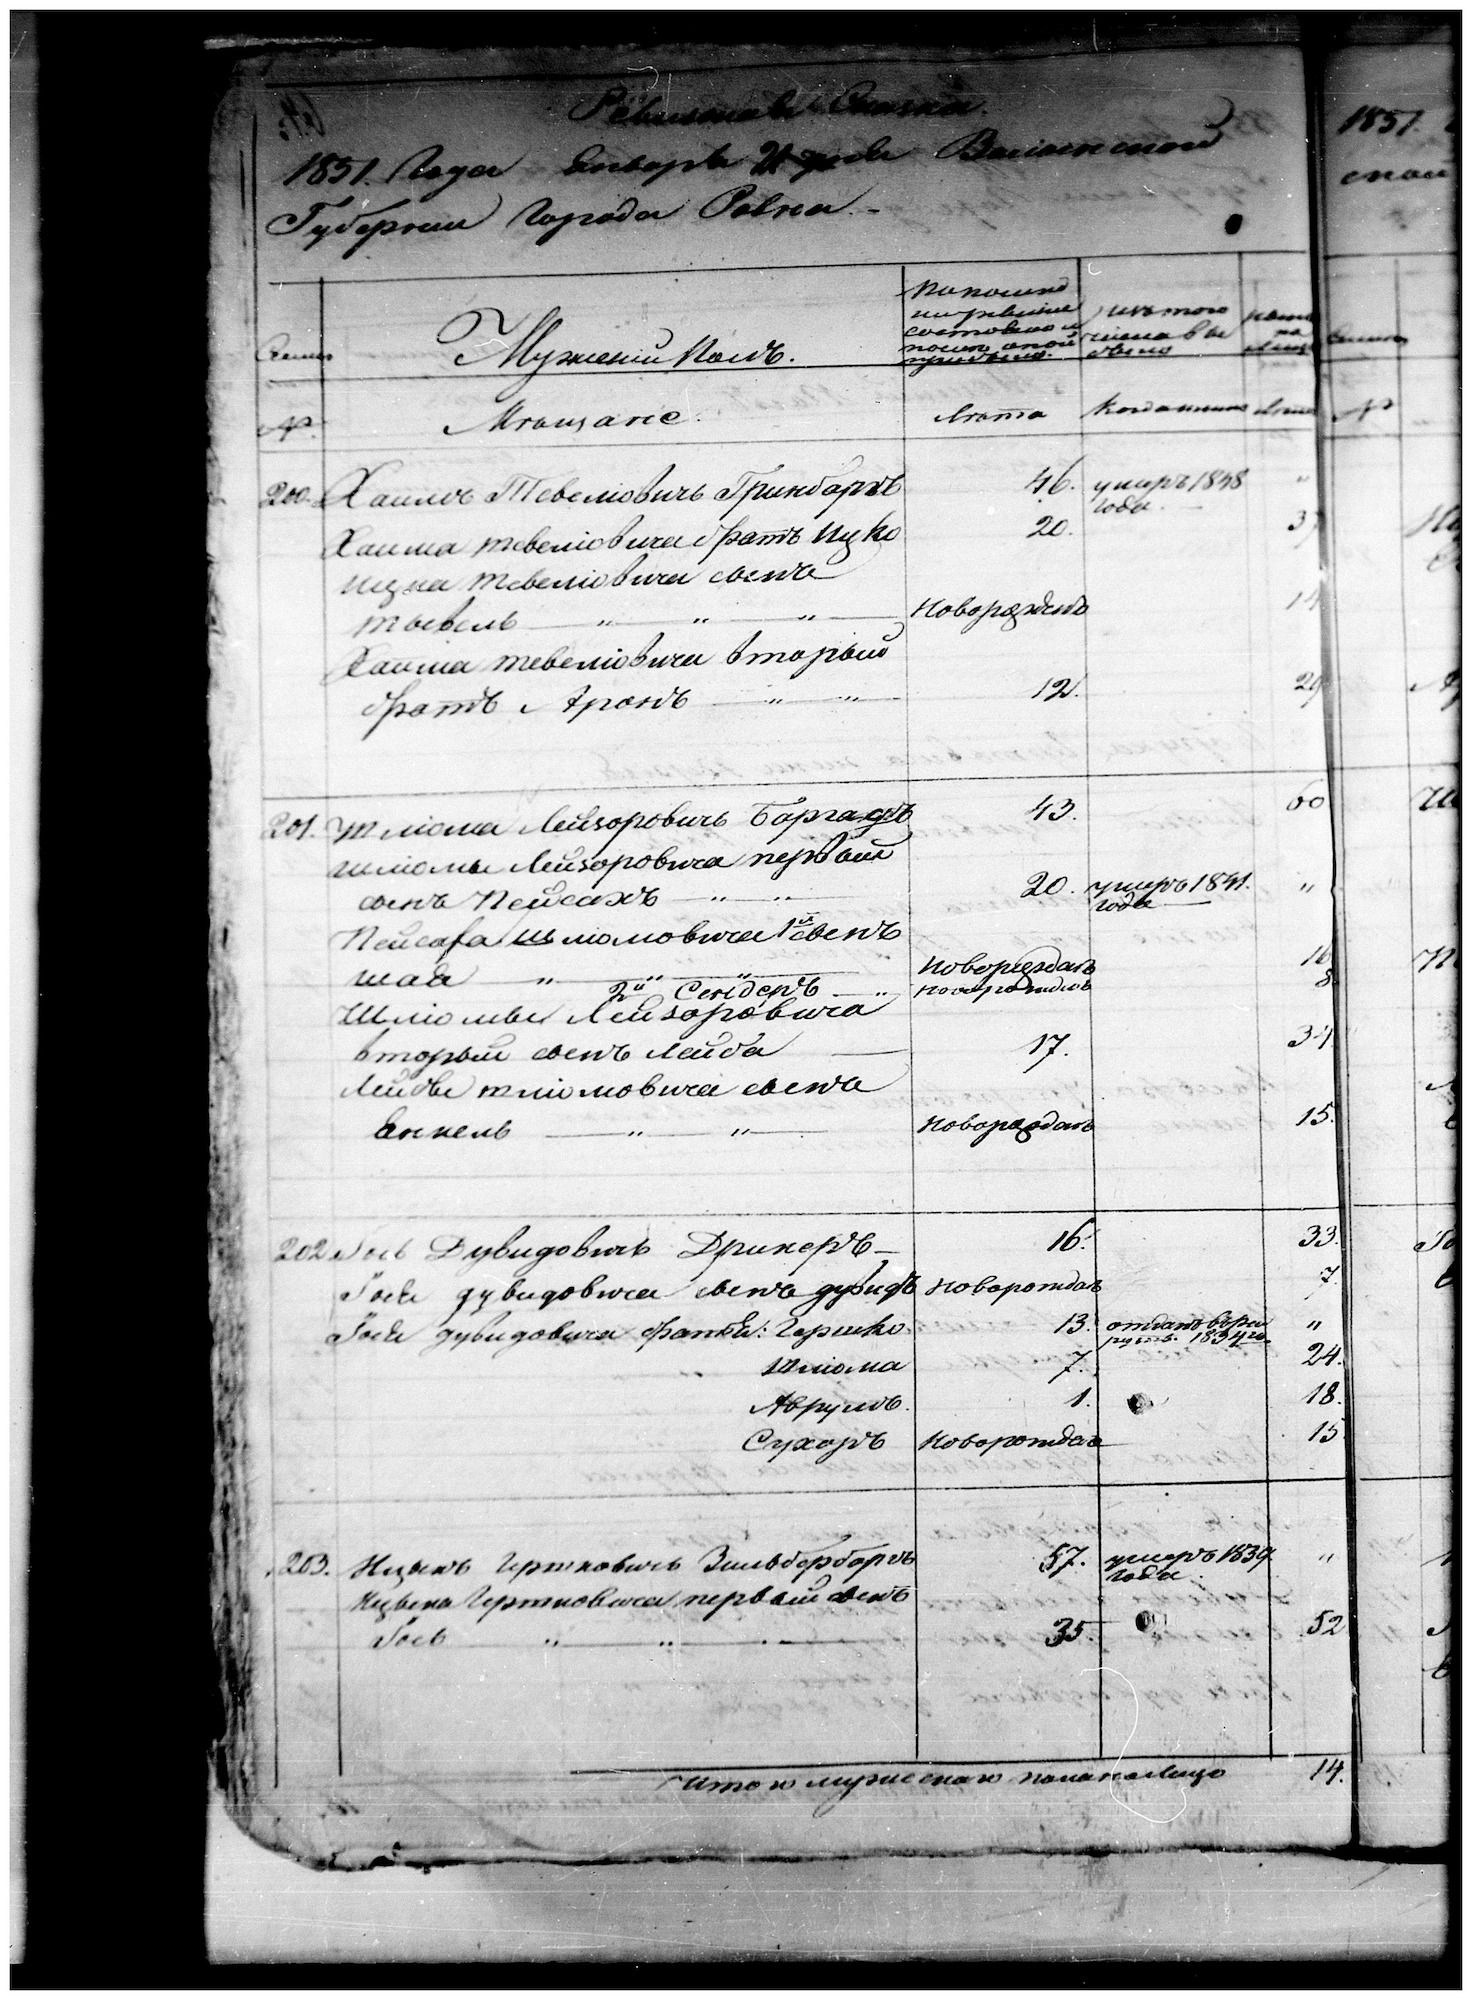 Ревизская Сказка.
1851. Года Января 21 дня Волынской
Губернии Города Ровна.
1851.
ской
Семьи
Мужеский Полъ.
По последней ревизии состояло и после оной прибыло.
Изъ того числа выбыло
Ныне на лицо
Семьи
№
Мещане.
Лета
Когда именно
Лета
№
200. Хаимъ Тевелiовичь Гринбаргъ 46. умеръ 1848 "
года.
Хаима Тевелiовича братъ Ицко 20. 37
Ицка Тевелiовича сынъ
Тывель " " " Новорожденъ 14
Хаима Тевелiовича вторый
братъ Аронъ " " 12. 29
201. Шлiома Лейзоровичь Баргадъ 43. 60
Шлiомы Лейзоровича первый
сынъ Пейсахъ " " 20. умеръ 1841. "
года
Пейсаха Шлiомовича 1й сынъ
Шая " " " Новорожданъ 16
2й Сендеръ " новорожданъ 8
Шлiомы Лейзоровича
вторый сынъ Лейба 17. 34
Лейбы Шлiомовича сынъ
Енкель " " Новорожданъ 15.
202 Гось Дувидовичь Дрикеръ 16. 33.
Гося Дувидовича сынъ Дувидъ Новорожданъ 7.
Гося Дувидовича братья: Гершко 13. отданъ в рек "
руты 1834 го.
Шлiома 7. 24.
Аврумъ. 1. 18.
Сухоръ Новорожданъ 15
203. Ицыкъ Гершковичь Зильберборгъ 57. умеръ 1839. "
года.
Ицыка Гершковича первый сынъ
Гось " " " 35. 52
Итого мужескаго пола на лицо 14.